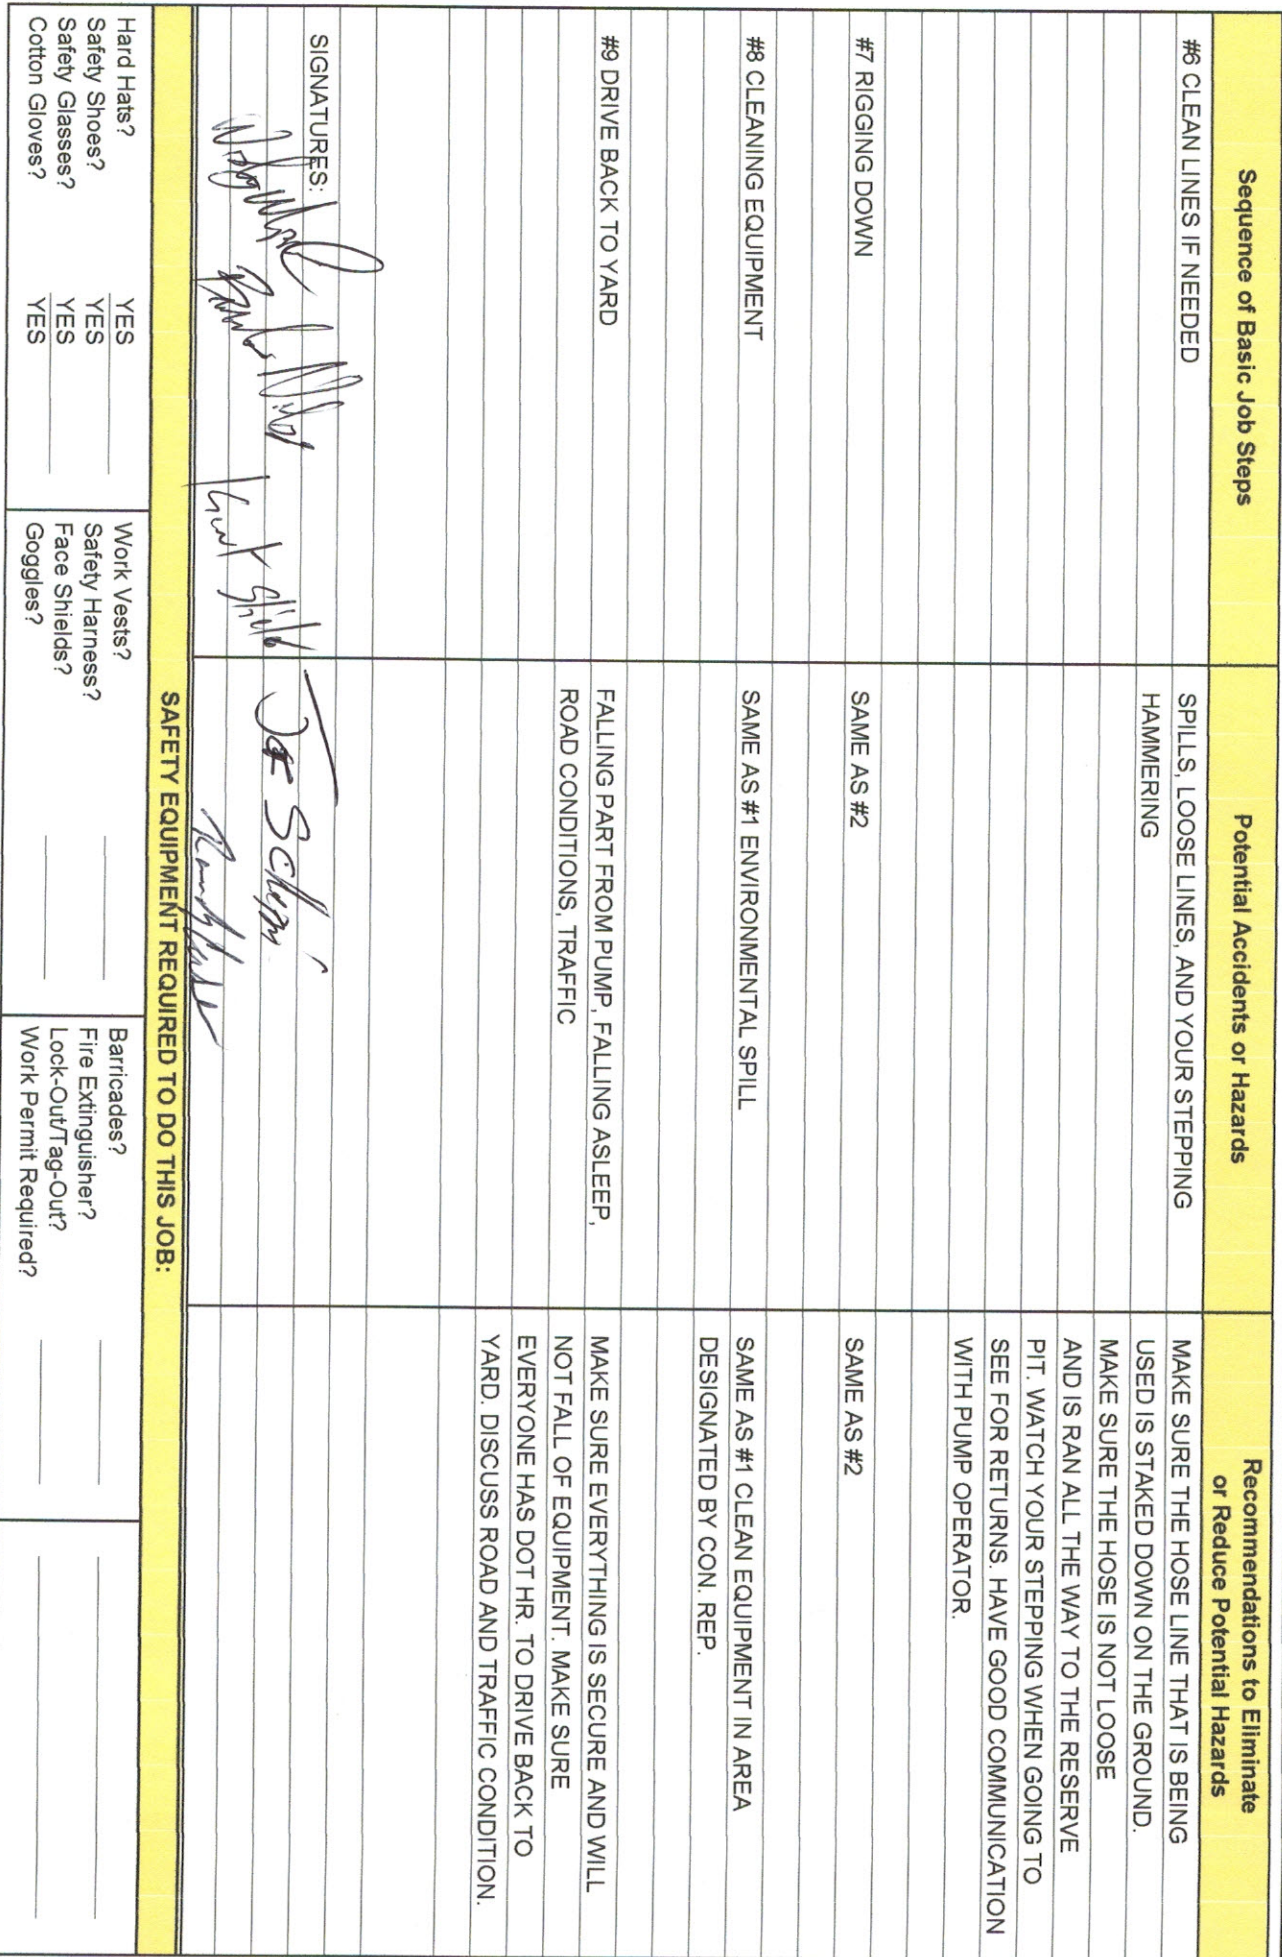 Sequence of Basic Job Steps
Potential Accidents or Hazards
Recommendations to Eliminate
or Reduce Potential Hazards
#6 CLEAN LINES IF NEEDED
SPILLS, LOOSE LINES, AND YOUR STEPPING
HAMMERING
MAKE SURE THE HOSE LINE THAT IS BEING
USED IS STAKED DOWN ON THE GROUND.
MAKE SURE THE HOSE IS NOT LOOSE
AND IS RAN ALL THE WAY TO THE RESERVE
PIT. WATCH YOUR STEPPING WHEN GOING TO
SEE FOR RETURNS. HAVE GOOD COMMUNICATION
WITH PUMP OPERATOR.
#7 RIGGING DOWN
SAME AS #2
SAME AS #2
#8 CLEANING EQUIPMENT
SAME AS #1 ENVIRONMENTAL SPILL
SAME AS #1 CLEAN EQUIPMENT IN AREA
DESIGNATED BY CON. REP.
#9 DRIVE BACK TO YARD
FALLING PART FROM PUMP, FALLING ASLEEP,
ROAD CONDITIONS, TRAFFIC
MAKE SURE EVERYTHING IS SECURE AND WILL
NOT FALL OF EQUIPMENT. MAKE SURE
EVERYONE HAS DOT HR. TO DRIVE BACK TO
YARD. DISCUSS ROAD AND TRAFFIC CONDITION.
SIGNATURES:
SAFETY EQUIPMENT REQUIRED TO DO THIS JOB:
Hard Hats? YES
Safety Shoes? YES
Safety Glasses? YES
Cotton Gloves? YES
Work Vests?
Safety Harness?
Face Shields?
Goggles?
Barricades?
Fire Extinguisher?
Lock-Out/Tag-Out?
Work Permit Required?